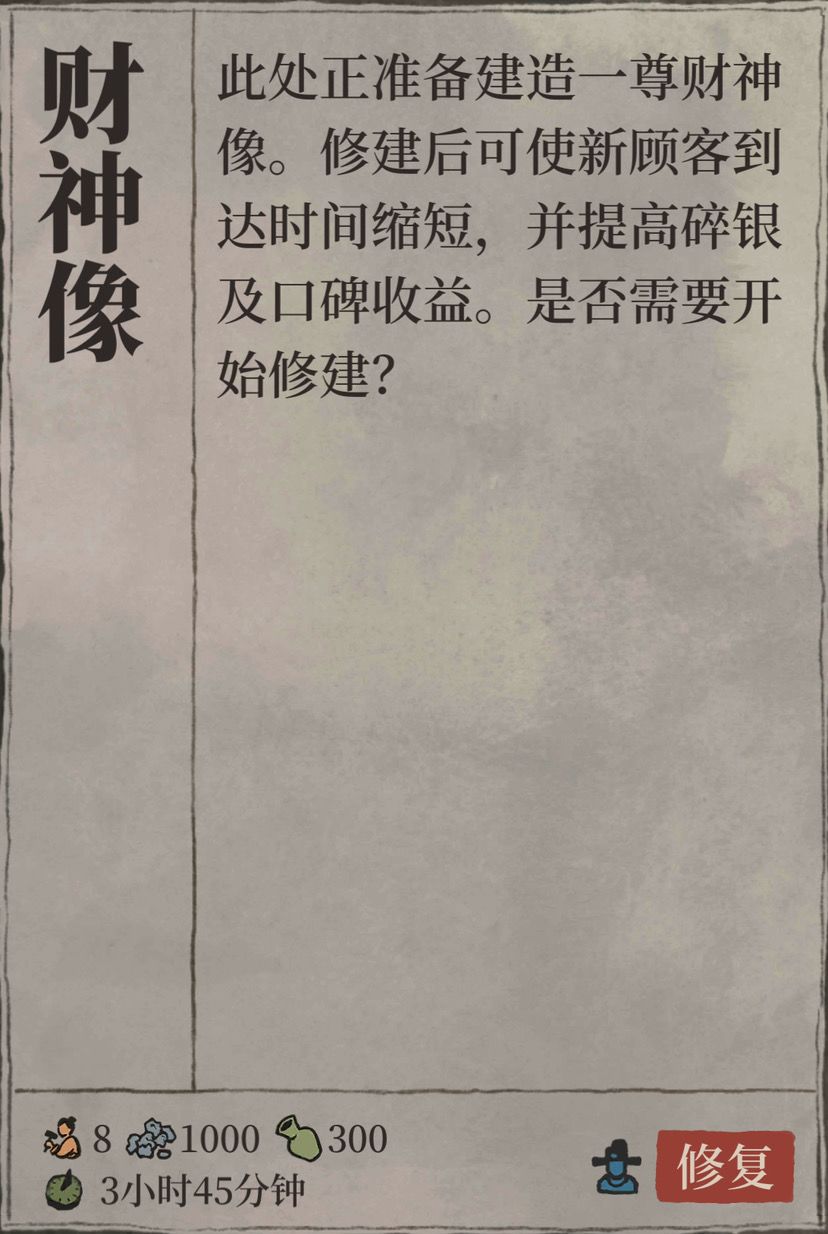 财神像
此处正准备建造一尊财神
像。修建后可使新顾客到
达时间缩短，并提高碎银
及口碑收益。是否需要开
始修建？
8 1000 300
3小时45分钟
修复